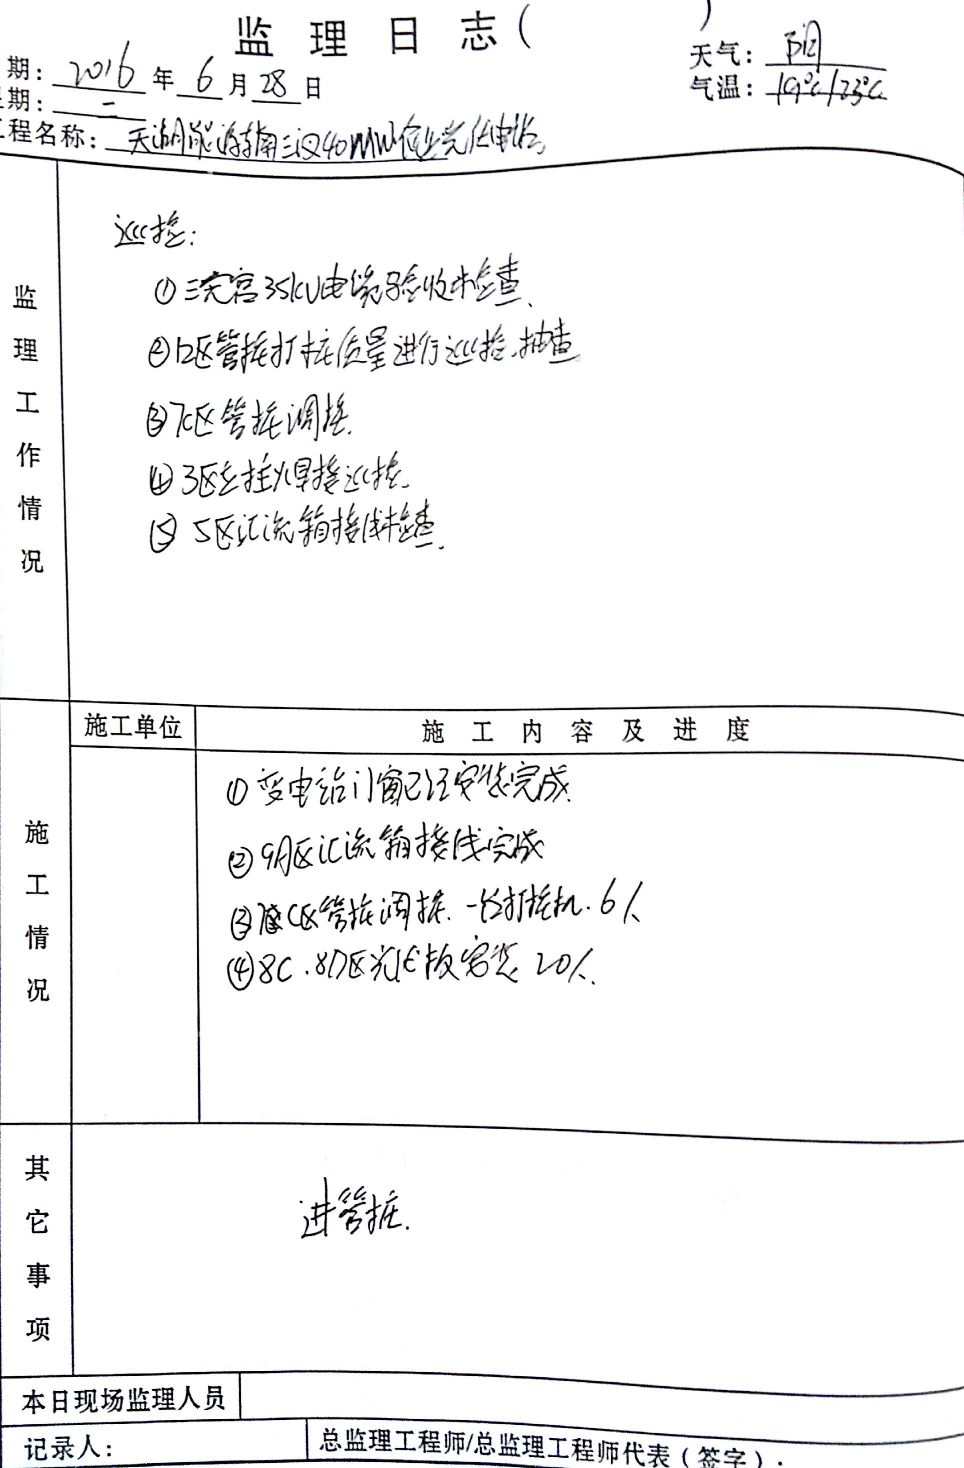 监理日志（ ）
期：2016年6月28日
天气：阴
期：二
气温：19℃/23℃
程名称：天湖能源 三汊40MW 光伏电站
监理工作情况
巡检：
① 三 宫35kV电缆 验收 检查
② 12区管桩打桩质量进行巡检、抽查
③ 7C区管桩调桩
④ 3区立柱焊接巡检
⑤ 5区汇流箱接线检查
施工单位
施工内容及进度
施工情况
① 变电站门窗已经安装完成
② 9A区汇流箱接线完成
③ C区管桩调桩、一台打桩机、6人
④ 8C、8D区光伏板安装 20人
其它事项
进管桩
本日现场监理人员
记录人：
总监理工程师/总监理工程师代表（签字）：